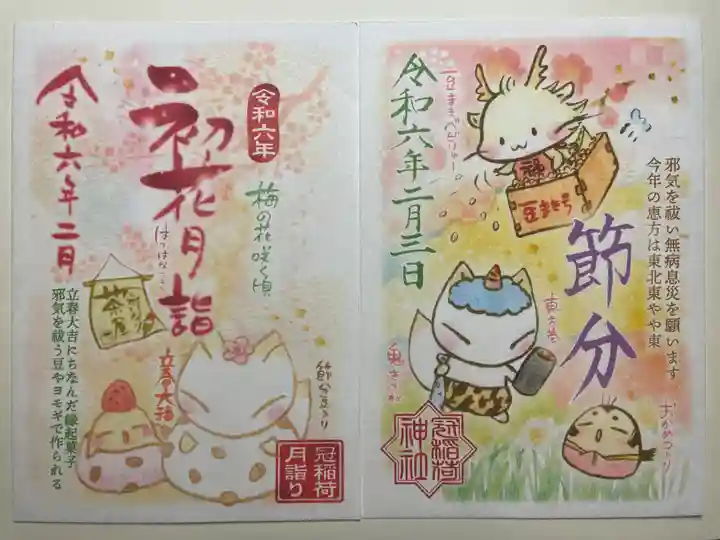 節分
令和六年二月三日
豆まきべびりゅー
福
豆まき号
邪気を祓い無病息災を願います
今年の恵方は東北東やや東
恵方巻
鬼きつね
おかめつり
冠稲荷
神社
初花月詣
はつはなつき
令和六年二月
令和六年
梅の花咲く頃
茶屋
立春大福
節分豆入り
立春大吉にちなんだ縁起菓子
邪気を祓う豆やヨモギで作られる
冠稲荷
月詣り